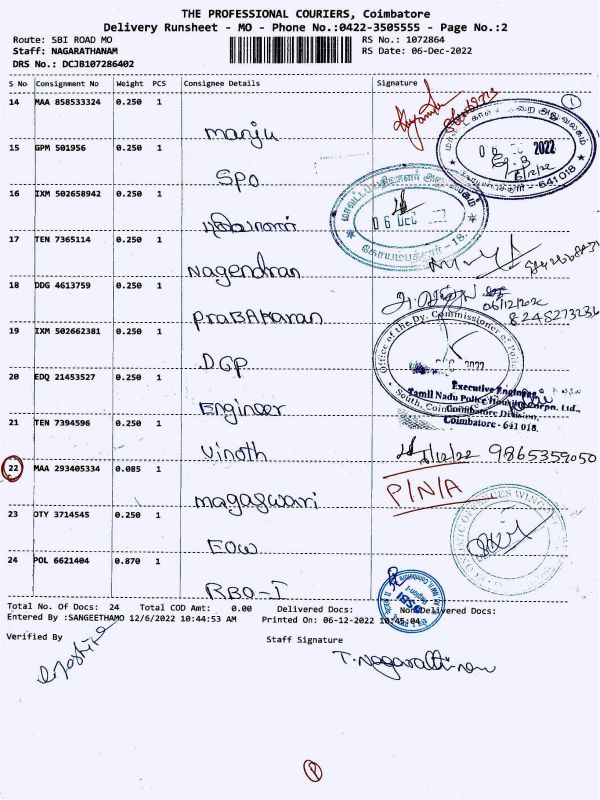 THE PROFESSIONAL COURIERS, Coimbatore
Delivery Runsheet - MO - Phone No.:0422-3505555 - Page No.:2
Route: SBI ROAD MO RS No.: 1072864
Staff: NAGARATHANAM RS Date: 06-Dec-2022
DRS No.: DCJB107286402
S No Consignment No Weight PCS Consignee Details Signature
14 MAA 858533324 0.250 1
manju
15 GPM 501956 0.250 1
SPO
16 IXM 502658942 0.250 1
06 DEC 2022
17 TEN 7365114 0.250 1
Nagendran
18 DDG 4613759 0.250 1
PraBAkaran
06/12/2022
8248273236
19 IXM 502662381 0.250 1
DGP
Office of the Dy. Commissioner of Police
South, Coimbatore
20 EDQ 21453527 0.250 1
Engineer
Executive Engineer
Tamil Nadu Police Housing Corpn. Ltd.,
Coimbatore Division,
Coimbatore - 641 018.
21 TEN 7394596 0.250 1
Vinoth
6/12/22 9865359050
22 MAA 293405334 0.085 1
magaswari
P/N/A
23 DTY 3714545 0.250 1
EOW
24 POL 6621404 0.870 1
RBO-I
SBI
Total No. Of Docs: 24 Total COD Amt: 0.00 Delivered Docs: Non Delivered Docs:
Entered By :SANGEETHAMO 12/6/2022 10:44:53 AM Printed On: 06-12-2022 10:45:04
Verified By Staff Signature
T. Nagarathinam